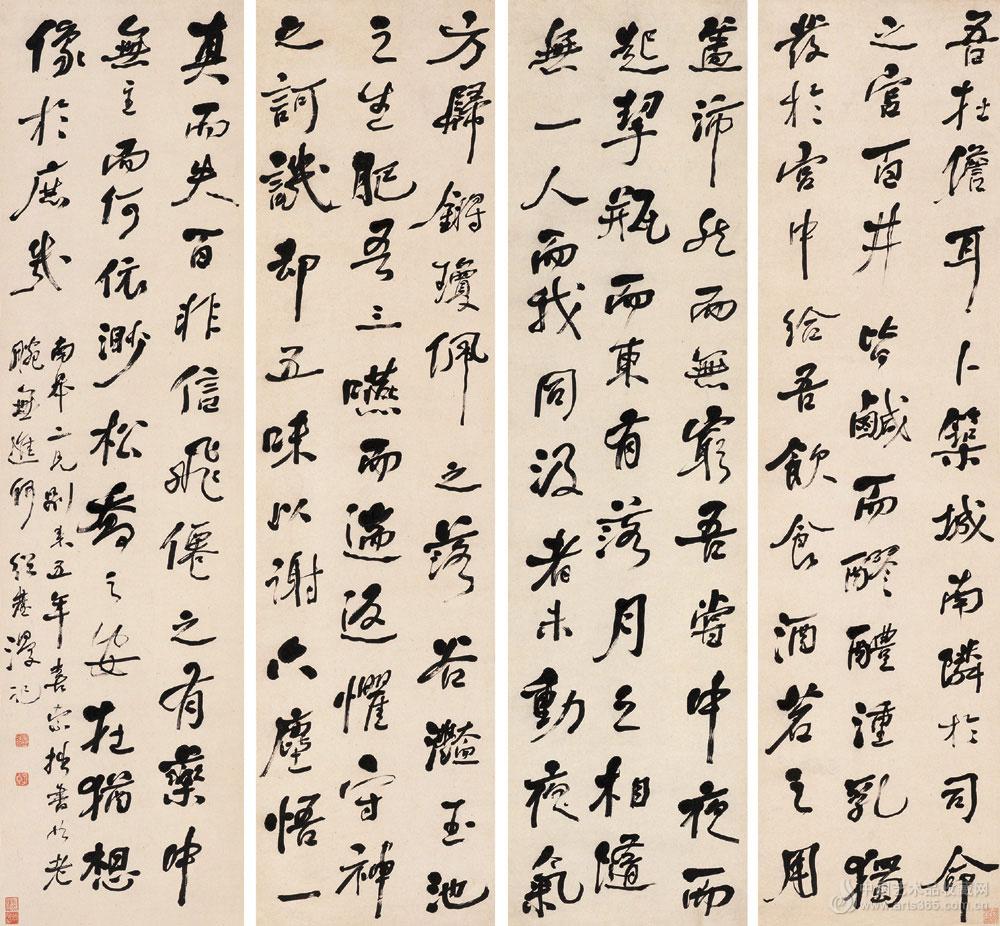 吾在儋耳卜築城南隣於司命
之宮百井皆鹹而醪醴湩乳獨
發於宮中給吾飲食酒茗之用
蓋沛然而無窮吾嘗中夜而
起挈瓶而東有落月之相隨
無一人而我同汲者未動夜氣
方歸鏘瓊佩之落谷灩玉池
之生肥吾三嚥而遄返懼守神
之訶譏却五味以謝六塵悟一
真而失百非信飛僊之有藥中
無主而何依渺松喬之安在猶想
像於庶幾
南 二兄別來五年喜索拙書 老
腕無進 漫
www.arts365.com.cn